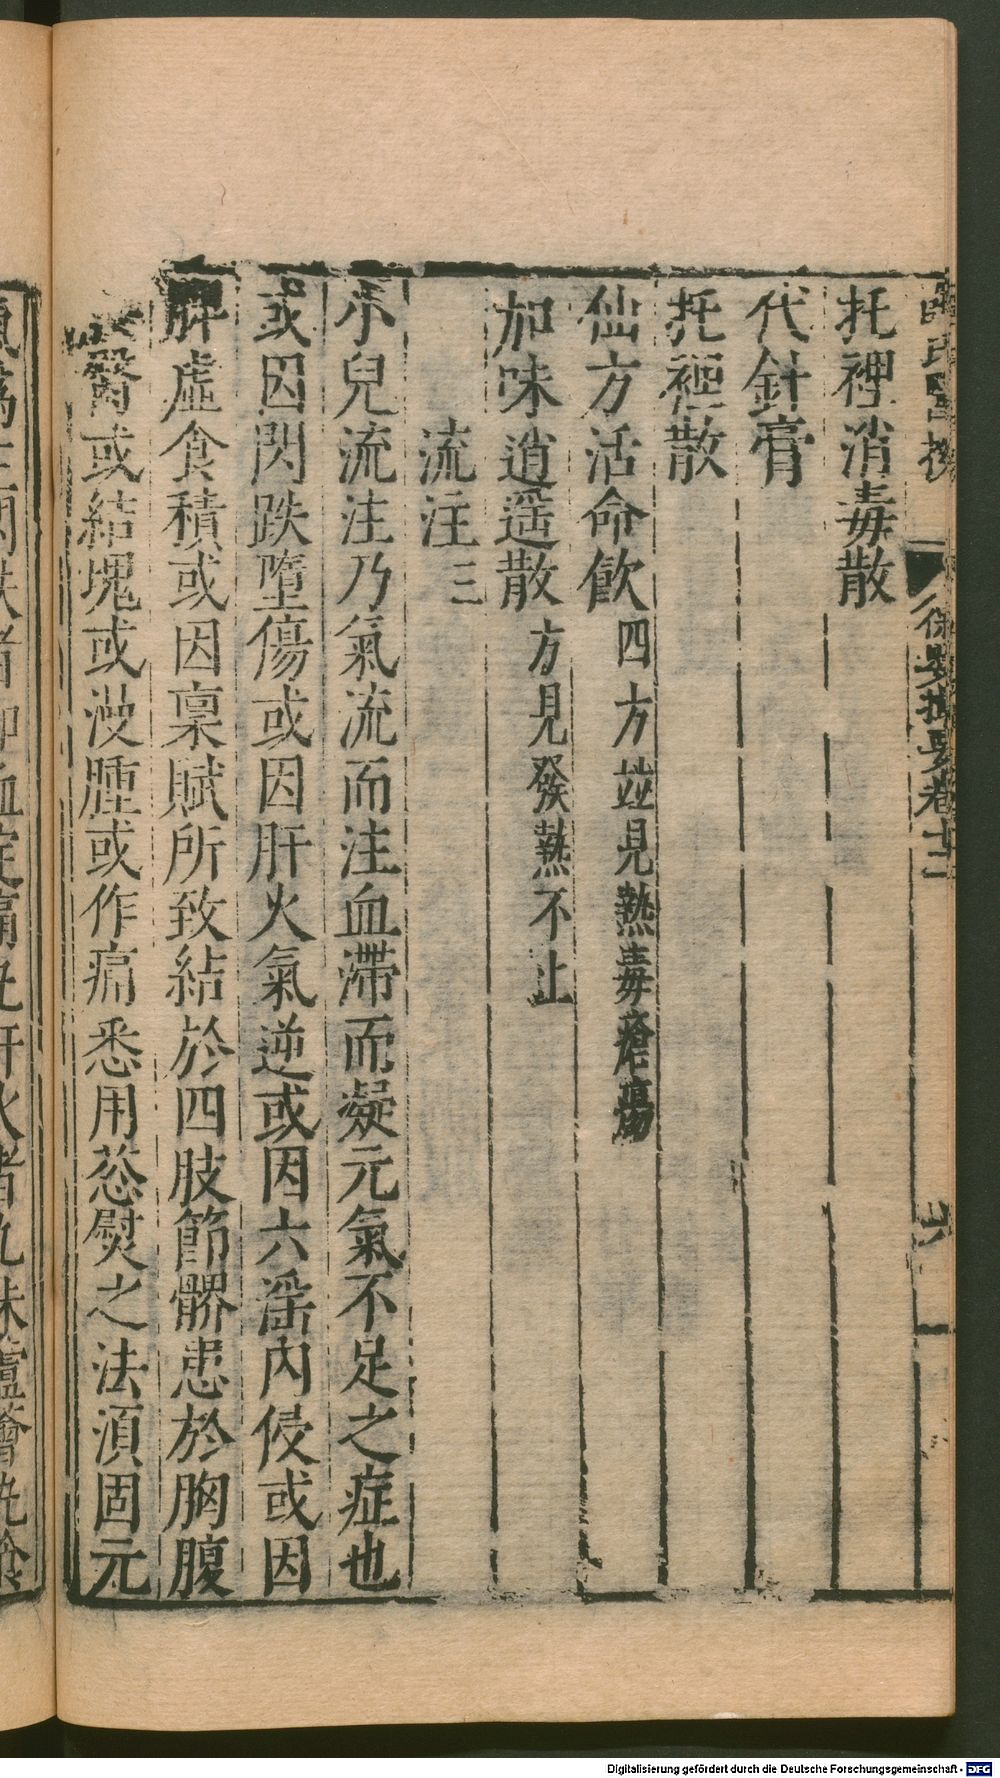 保嬰撮要卷十二
六
托裡消毒散
代針膏
托裡散
仙方活命飲四方並見熱毒瘡瘍
加味逍遥散方見發熱不止
流注三
小兒流注乃氣流而注血滯而凝元氣不足之症也
或因閃跌墮傷或因肝火氣逆或因六淫内侵或因
脾虛食積或因稟賦所致結於四肢節髎患於胸腹
腰臀或結塊或漫腫或作痛悉用葱熨之法須固元
Digitalisierung gefördert durch die Deutsche Forschungsgemeinschaft - DFG